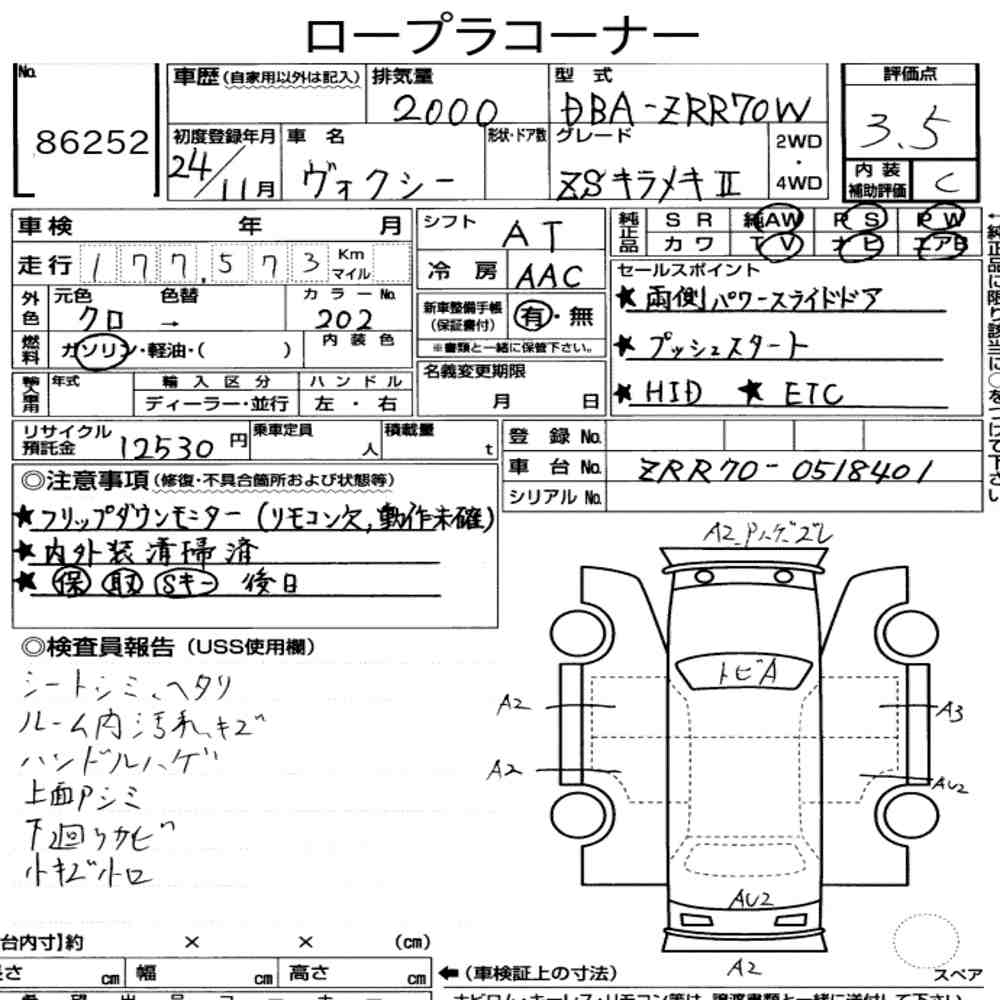 ロープラコーナー
No. 86252
車歴 (自家用以外は記入)
排気量 2000
型式 DBA-ZRR70W
評価点 3.5
初度登録年月 24/11月
車名 ヴォクシー
形状・ドア数
グレード ZSキラメキII
2WD・4WD
内装補助評価 C
車検 年 月
走行 177,573 Km マイル
シフト AT
冷房 AAC
純正品 SR 純AW PS PW
カワ TV ナビ エアB
←純正品に限り該当に○をつけて下さい
外色 元色 クロ → 色替 カラーNo. 202
燃料 ガソリン・軽油・( ) 内装色
新車整備手帳(保証書付) 有・無
※書類と一緒に保管下さい。
セールスポイント
★両側パワースライドドア
★プッシュスタート
★HID ★ETC
年式 輸入区分 ハンドル
ディーラー・並行 左・右
名義変更期限 月 日
リサイクル預託金 12530円 乗車定員 人 積載量 t
登録No.
車台No. ZRR70-0518401
シリアルNo.
◎注意事項 (修復・不具合箇所および状態等)
★フリップダウンモニター(リモコン欠,動作未確)
★内外装清掃済
★保 取 Sキー 後日
◎検査員報告 (USS使用欄)
シートシミ、ヘタリ
ルーム内汚れ、キズ
ハンドルハゲ
上面Pシミ
下廻りサビ
小キズ小ロ
A2_Pハゲズレ
トビA
A2
A3
A2
AU2
AU2
A2
スペア
台内寸】約 × × (cm)
長さ cm 幅 cm 高さ cm
←(車検証上の寸法)